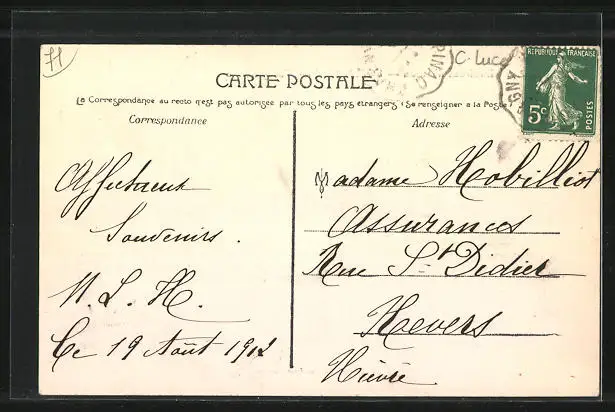 71
C. Luce
RÉPUBLIQUE FRANÇAISE
5c
POSTES
CARTE POSTALE
La Correspondance au recto n'est pas autorisée par tous les pays étrangers (Se renseigner à la Poste)
Correspondance
Adresse
Affectueux
Souvenirs.
M. L. H.
Ce 19 Août 1912
Madame Hobilliot
Assurances
Rue St Didier
Nevers
Nièvre